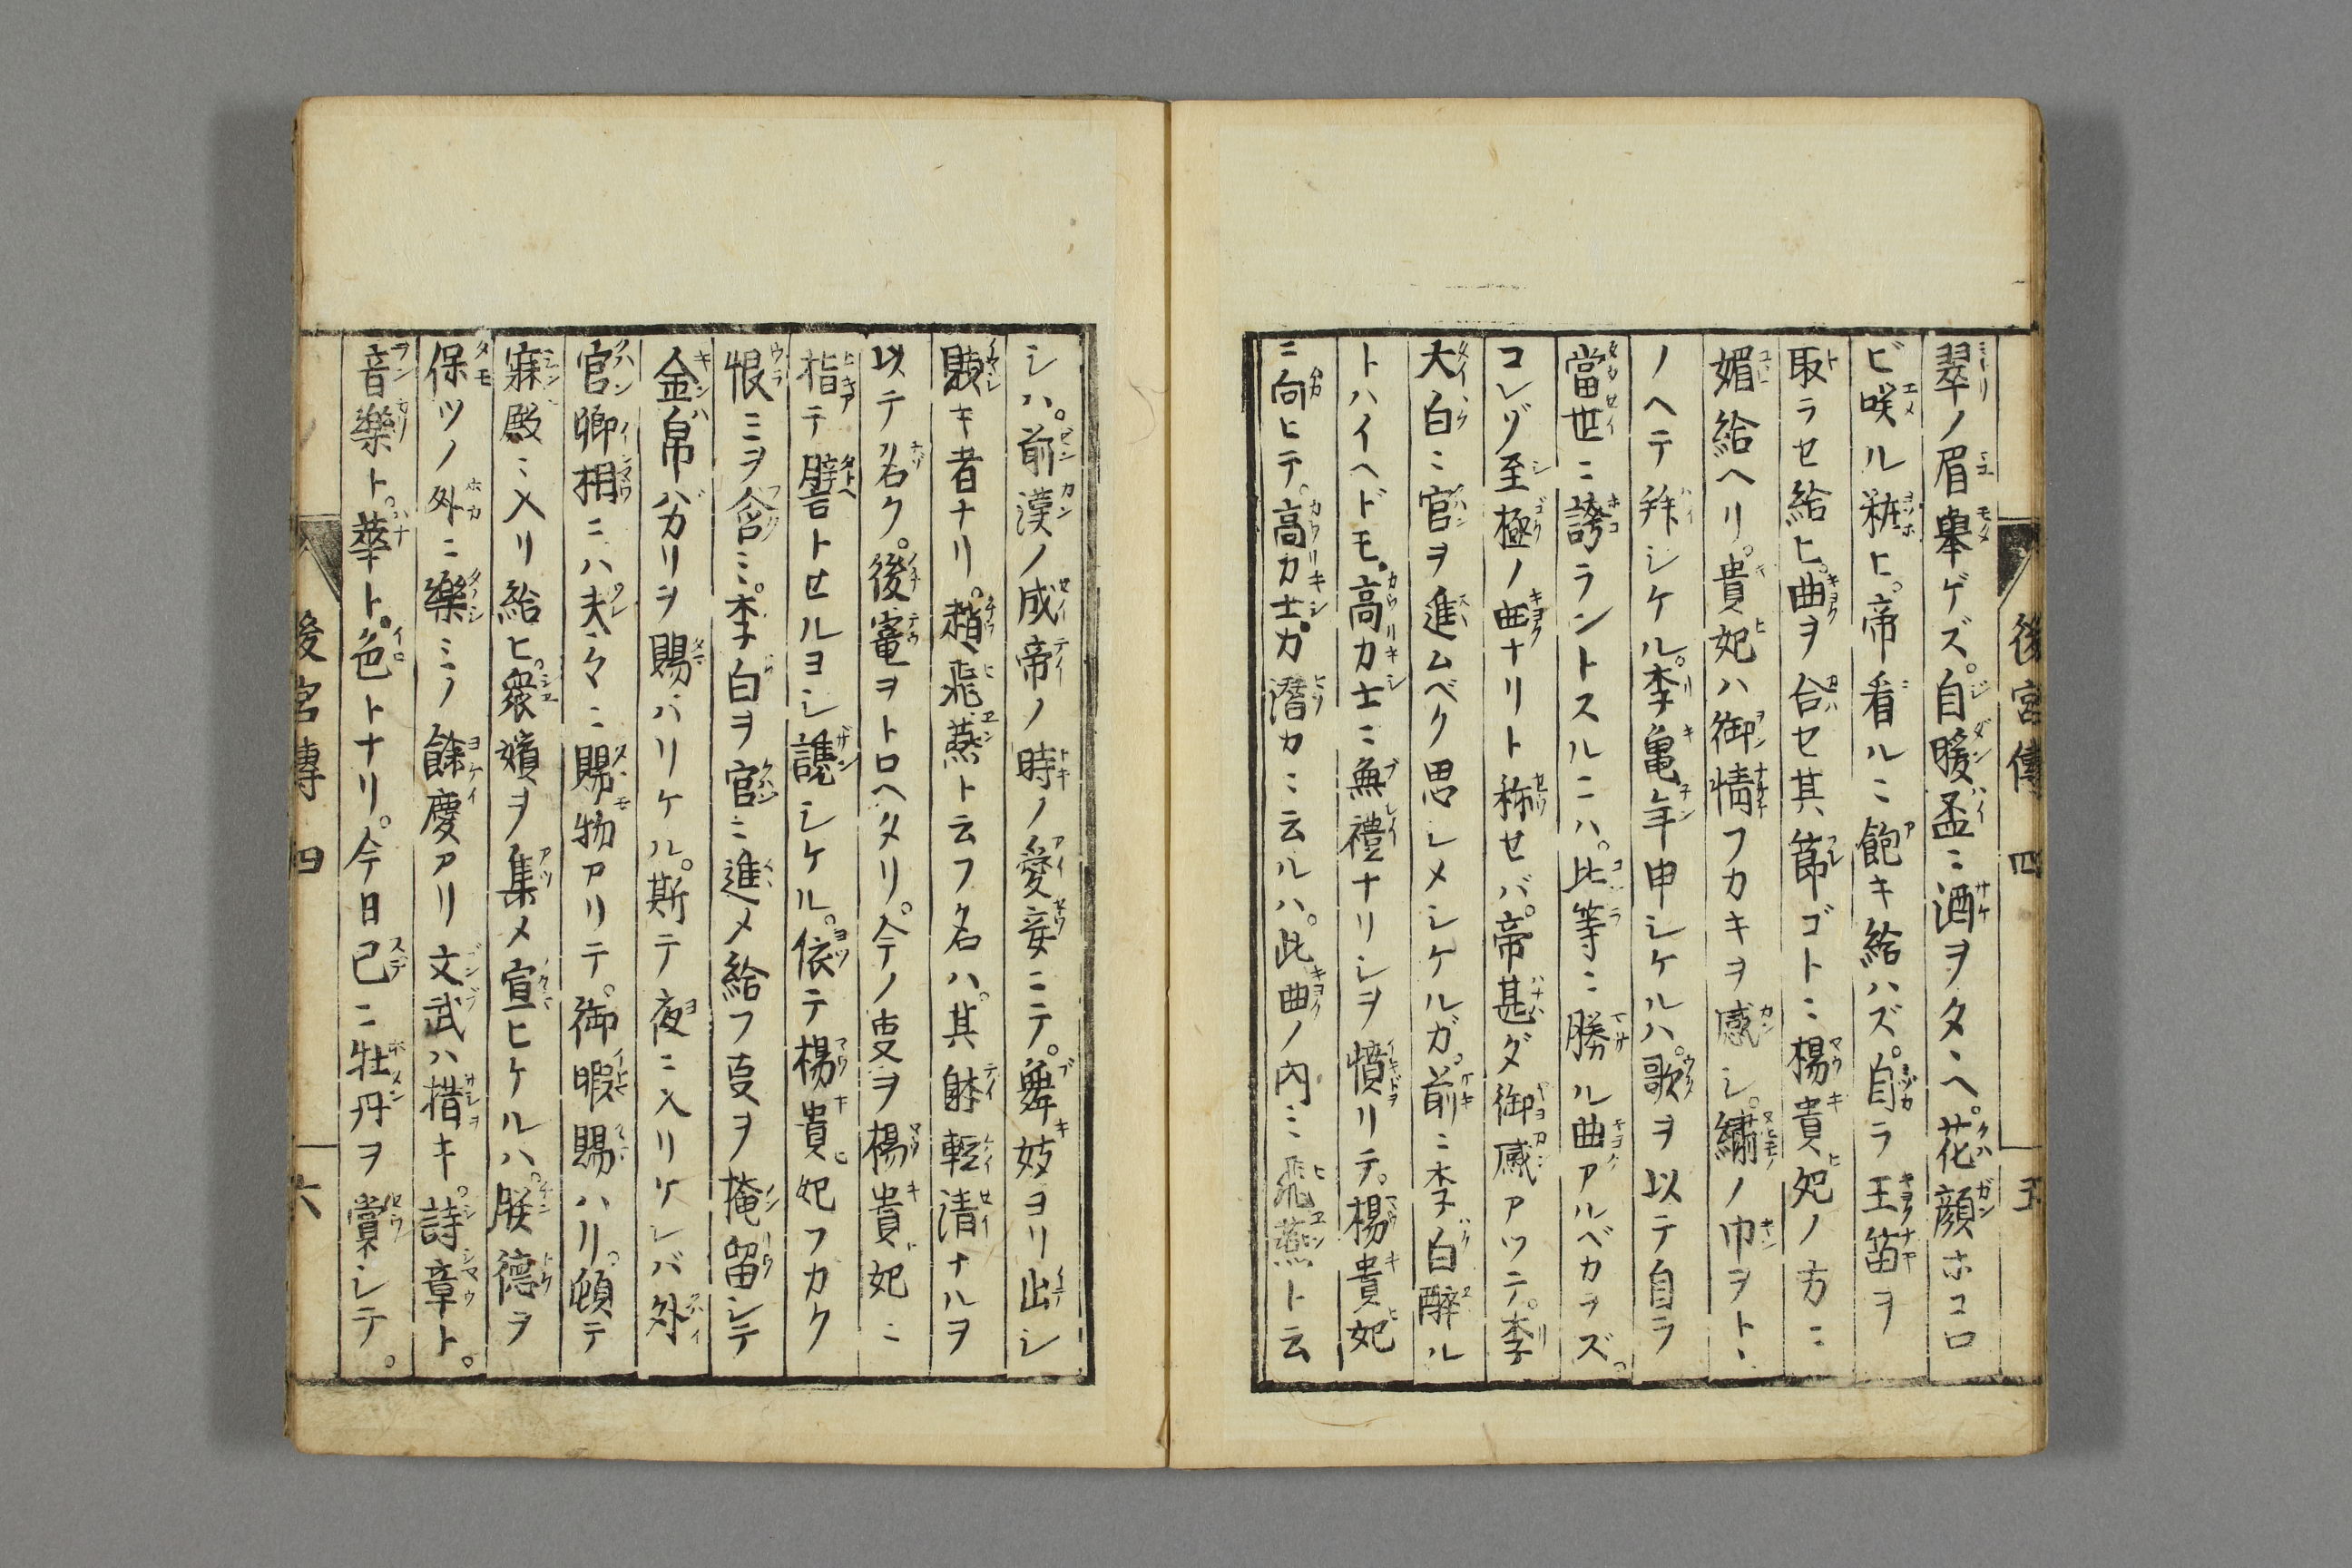 後宮傳 四 五
翠ノ眉擧ゲズ。自暖盃ニ酒ヲタヽヘ。花顔ホコロ
ビ咲ル粧ヒ。帝看ルニ飽キ給ハズ。自ラ玉笛ヲ
取ラセ給ヒ。曲ヲ合セ其節ゴトニ楊貴妃ノ方ニ
媚給ヘリ。貴妃ハ御情フカキヲ感シ。繡ノ巾ヲトヽ
ノヘテ拜シケル。李亀年申シケルハ。歌ヲ以テ自ラ
當世ニ誇ラントスルニハ。此等ニ勝ル曲アルベカラズ。
コレゾ至極ノ曲ナリト称セバ。帝甚ダ御感アツテ。李
大白ニ官ヲ進ムベク思シメシケルガ。前ニ李白醉ル
トハイヘドモ。高力士ニ無禮ナリシヲ憤リテ。楊貴妃
ニ向ヒテ。高力士ガ潜カニ云ルハ。此曲ノ内ニ飛燕ト云
シハ。前漢ノ成帝ノ時ノ愛妾ニテ。舞妓ヨリ出シ
賎キ者ナリ。趙飛燕ト云フ名ハ。其躰輕清ナルヲ
以テ名ク。後竃ヲトロヘタリ。今ノ叓ヲ楊貴妃ニ
指テ譬トセルヨシ讒シケル。依テ楊貴妃フカク
恨ミヲ含ミ。李白ヲ官ニ進メ給フ叓ヲ掩留シテ
金帛バカリヲ賜ハリケル。斯テ夜ニ入リケレバ外
官卿相ニハ夫々ニ賜物アリテ。御暇賜ハリ。頓テ
寐殿ニ入リ給ヒ。衆嬪ヲ集メ宣ヒケルハ。朕德ヲ
保ツノ外ニ樂ミノ餘慶アリ文武ハ措キ。詩章ト。
音樂ト。華ト。色トナリ。今日已ニ牡丹ヲ賞シテ。
後宮傳 四 六